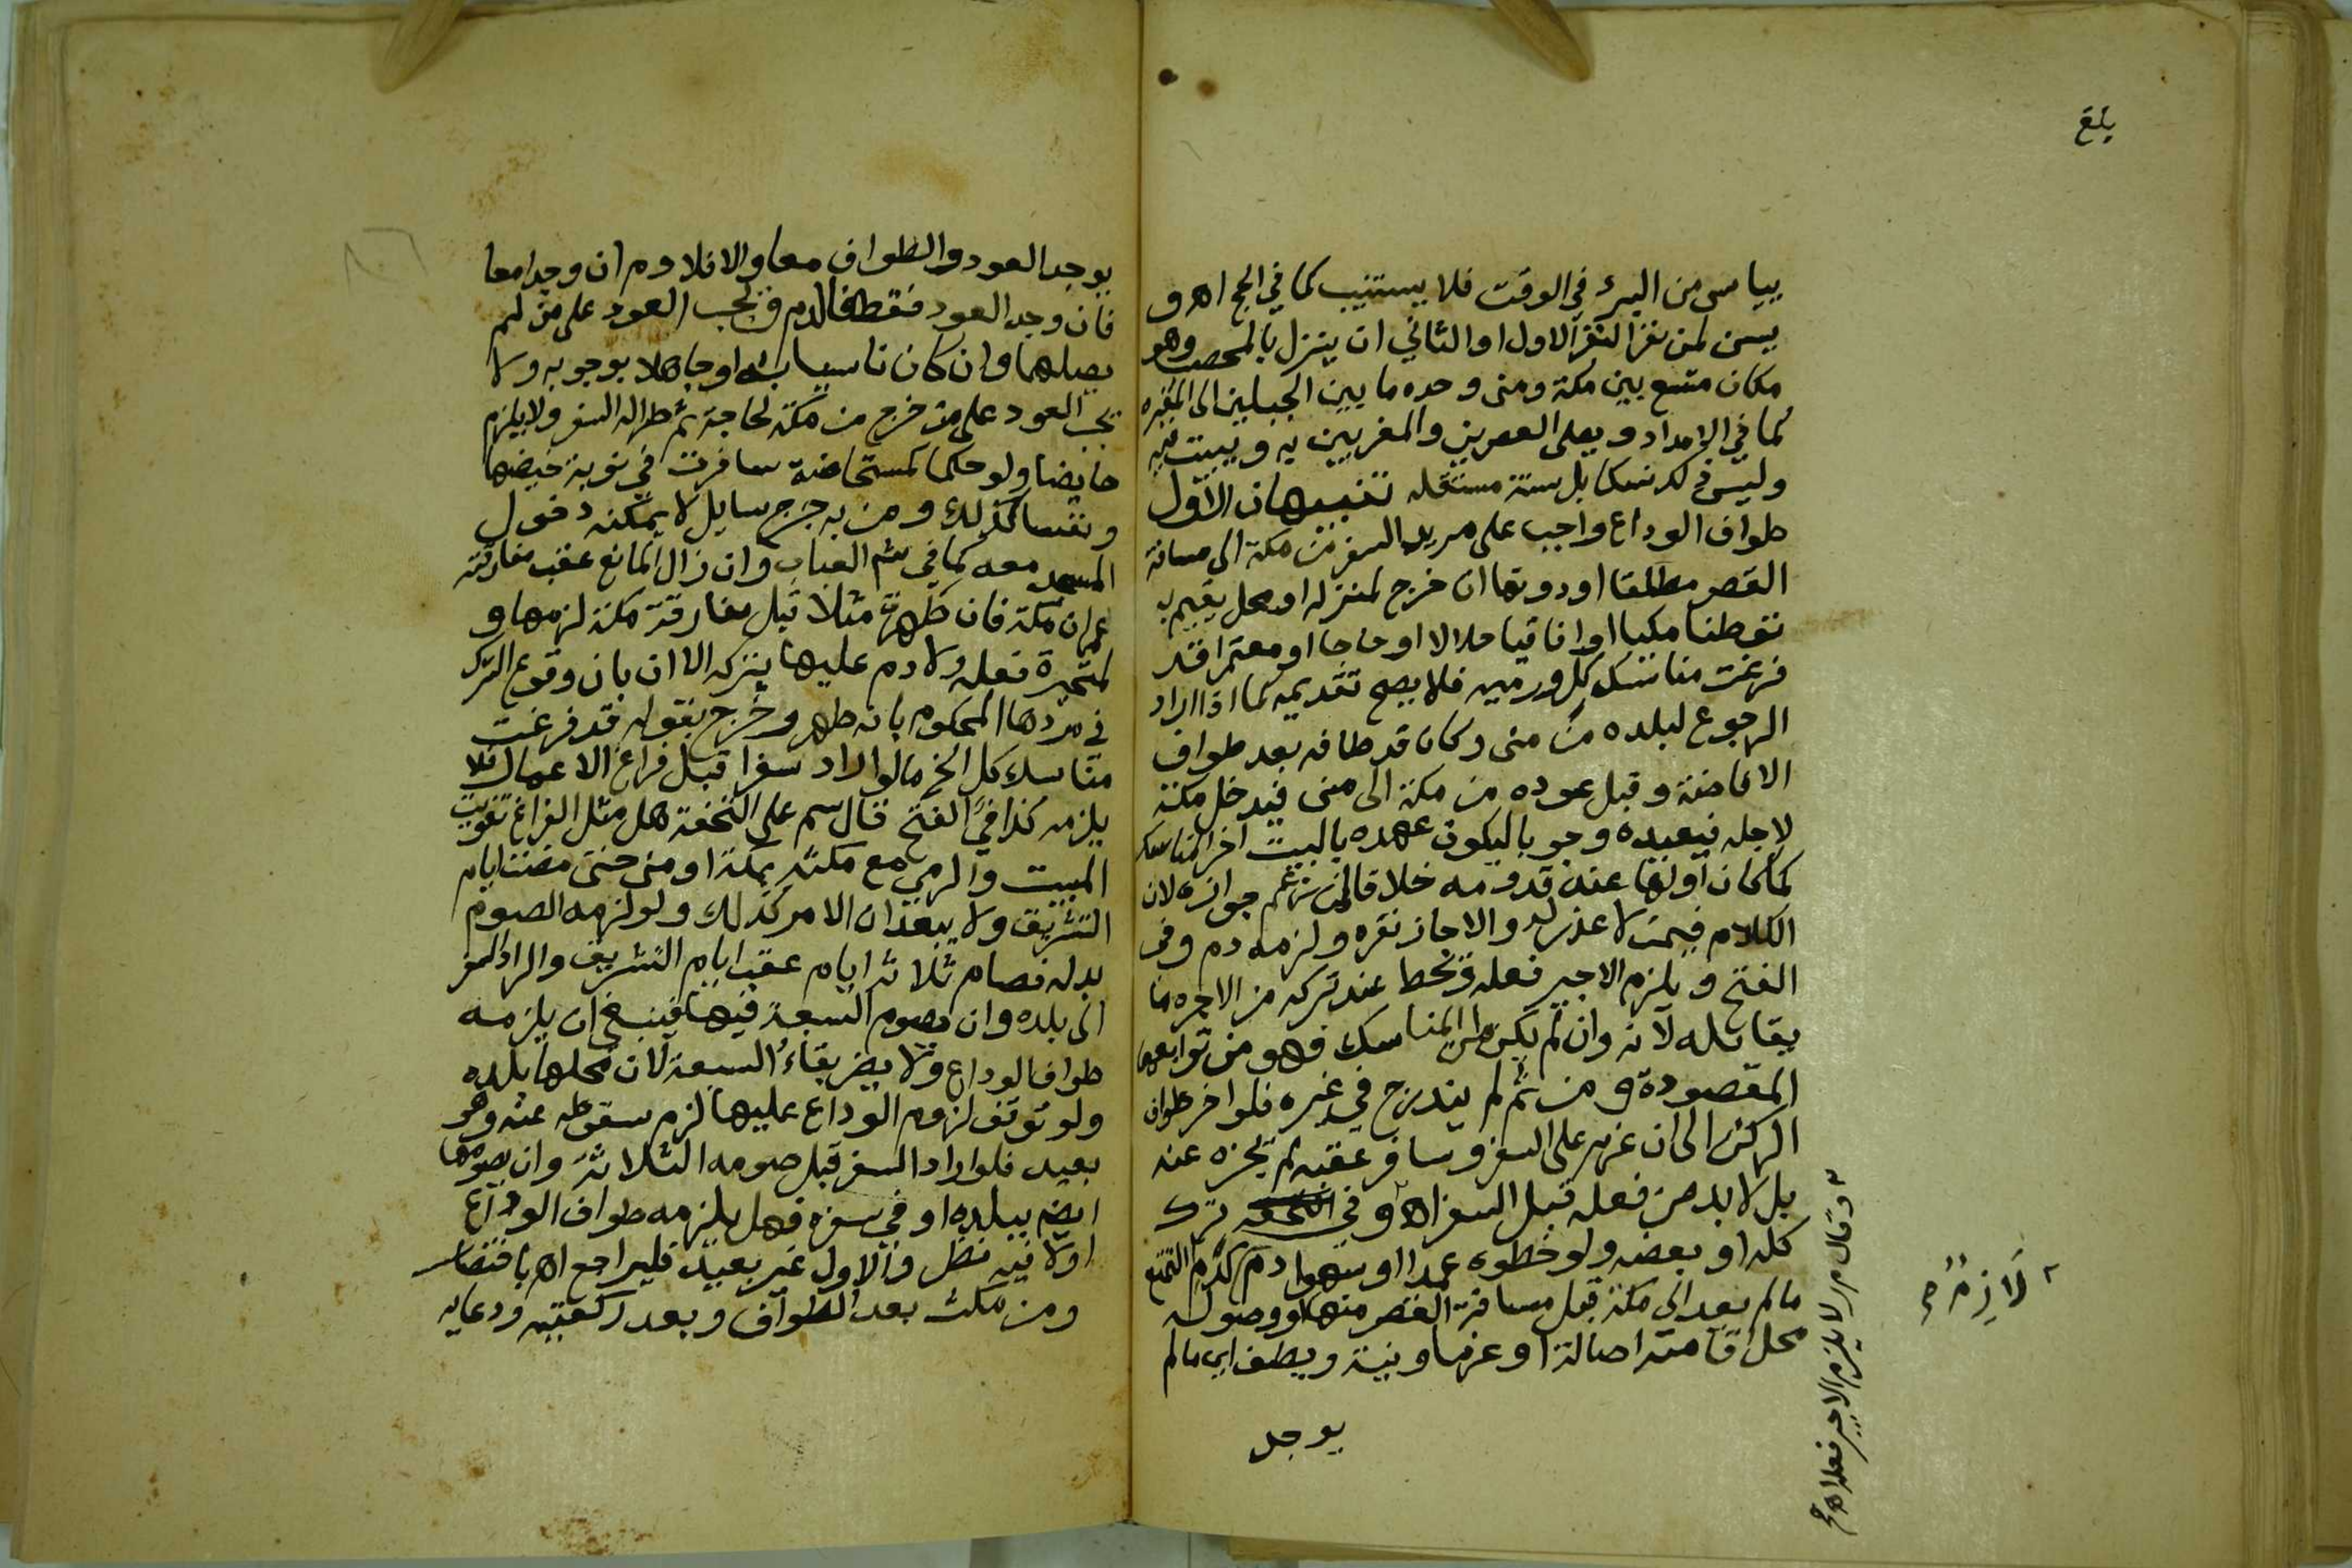 بلغ
ييأس من البرء في الوقت فلا يستنيب كما في الحج اهـ و
يسن لمن نفر النفر الاول او الثاني ان ينزل بالمحصب وهو
مكان متسع بين مكة ومنى وحده ما بين الجبلين الى المقبره
كما في الامداد ويصلى العصرين والمغربين به ويبيت به
وليس ذلك نسكا بل سنة مستقله تنبيهان الاول
طواف الوداع واجب على مريد السفر من مكة الى مسافة
القصر مطلقا او دونها ان خرج لمنزله او محل يقيم به
توطنا مكيا او افاقيا حلالا او حاجا او معتمرا قد
فرغت مناسك كل ورميه فلا يصح تقديمه كما اذا اراد
الرجوع لبلده من منى وكان قد طافه بعد طواف
الافاضة وقبل عوده من مكة الى منى فيدخل مكة
لاجله فيعيده وجوبا ليكون عهده بالبيت اخر المناسك
كما كان اولها عند قدومه خلافا لمن زعم جوازه لان
الكلام فيمن لا عذر له والا جاز نفره ولزمه دم وفي
الفتح ويلزم الاجير فعله ويحط عند تركه من الاجره ما
يقابله لانه وان لم يكن من المناسك فهو من توابعها
المقصودة ومن ثم لم يندرج في غيره فلو اخر طواف
الركن الى ان عزم على السفر وسافر عقبه لم يجزه عنه
بل لا بد من فعله قبل السفر اهـ وفي ترك
كله او بعضه ولو خطوه عمدا او سهوا دم كدم التمتع
مالم يعد الى مكة قبل مسافة القصر منها او وصول
محل اقامته اصالة او عزما ونية ويطف اي مالم
يوجد
وقال م ر لا يلزم الاجير فعله اهـ
لازم
يوجد العود والطواف معا والا فلا دم ان وجدا معا
فان وجد العود فقط فالدم ويجب العود على من لم
يصلهما وان كان ناسيا له او جاهلا بوجوبه ولا
يجب العود على من خرج من مكة لحاجة ثم طرا له السفر ولا يلزم
حايضا ولو حكما كمستحاضة سافرت في نوبة حيضها
ونفسا كذلك ومن به جرح سايل لا يمكنه دخول
المسجد معه كما في شم العباب وان زال المانع عقب مفارقته
عمران مكة فان طهرت مثلا قبل مفارقة مكة لزمها و
لمتحيرة فعله ولا دم عليها بتركه الا ان بان وقوع الترك
في مردها المحكوم بانه طهر وخرج بقوله قد فرغت
مناسك كل الخ مالو اراد سفرا قبل فراغ الاعمال فلا
يلزمه كذا في الفتح قال سم على التحفة هل مثل الفراغ تفويت
المبيت والرمي مع مكثه بمكة او منى حتى مضت ايام
التشريق ولا يبعد ان الامر كذلك ولو لزمه الصوم
بدله فصام ثلاثة ايام عقب ايام التشريق واراد السفر
الى بلده وان يصوم السبعة فيها فينبغي ان يلزمه
طواف الوداع ولا يضر بقاء السبعة لان محلها بلده
ولو توقف لزوم الوداع عليها لزم سقوطه عنه وهو
بعيد فلو اراد السفر قبل صومه الثلاثة وان يصومها
ايضم ببلده او في سفره فهل يلزمه طواف الوداع
اولا فيه نظر والاول غير بعيد فليراجع اهـ باختصار
ومن مكث بعد الطواف وبعد ركعتيه ودعايه